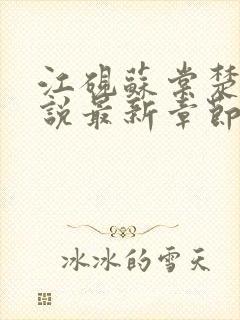 江硯蘇棠楚
說最新章節
冰冰的雪天